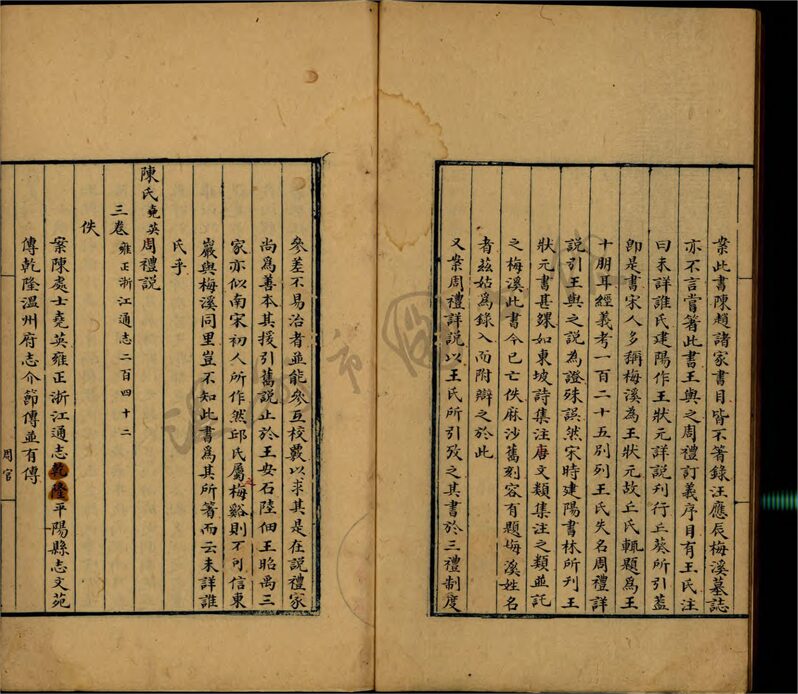 案此書陳趙諸家書目皆不箸錄汪應辰梅溪墓誌
亦不言嘗箸此書王與之周禮訂義序目有王氏注
曰未詳誰氏建陽作王狀元詳說刊行丘葵所引蓋
卽是書宋人多稱梅溪為王狀元故丘氏輒題為王
十朋耳經義考一百二十五別列王氏失名周禮詳
說引王與之說為證殊誤然宋時建陽書林所刊王
狀元書甚繆如東坡詩集注唐文類集注之類並託
之梅溪此書今已亡佚麻沙舊刻容有題梅溪姓名
者茲姑爲錄入而附辯之於此
又案周禮詳說以王氏所引攷之其書於三禮制度
參差不易治者並能參互校覈以求其是在說禮家
尚爲善本其援引舊說止於王安石陸佃王昭禹三
家亦似南宋初人所作然邱氏屬梅谿則不可信東
巖與梅溪同里豈不知此書為其所箸而云未詳誰
氏乎
陳氏堯英周禮說
三卷雍正浙江通志二百四十二
佚
案陳處士堯英雍正浙江通志乾隆平陽縣志文苑
傳乾隆溫州府志介節傳並有傳
周官